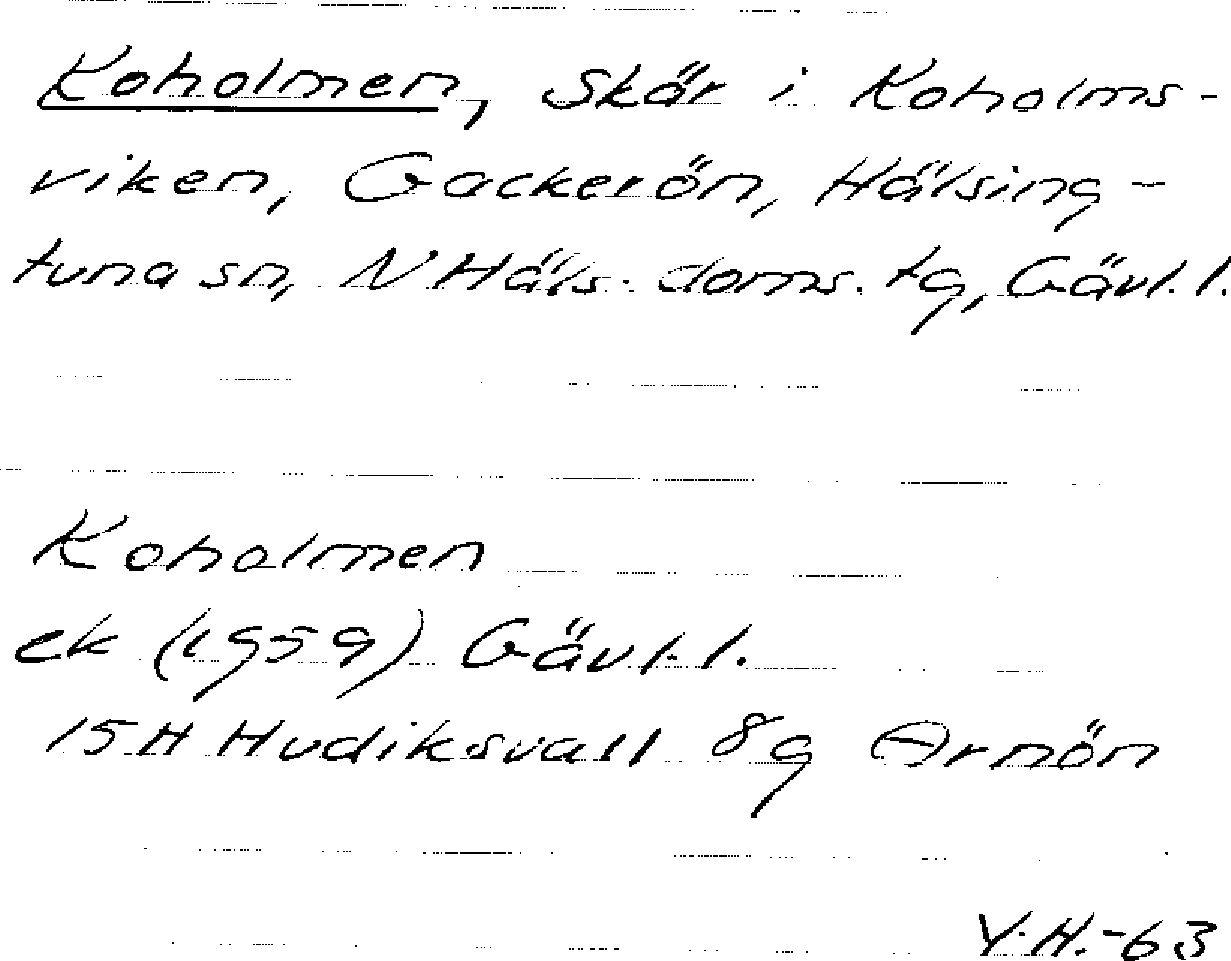 Koholmen, Skär i Koholms-
viken, Gackerön, Hälsing-
tuna sn, N Häls. doms. tg, Gävl. l.
Koholmen
ek (1959) Gävl. l.
15H Hudiksvall 8g Arnön
Y.H.-63